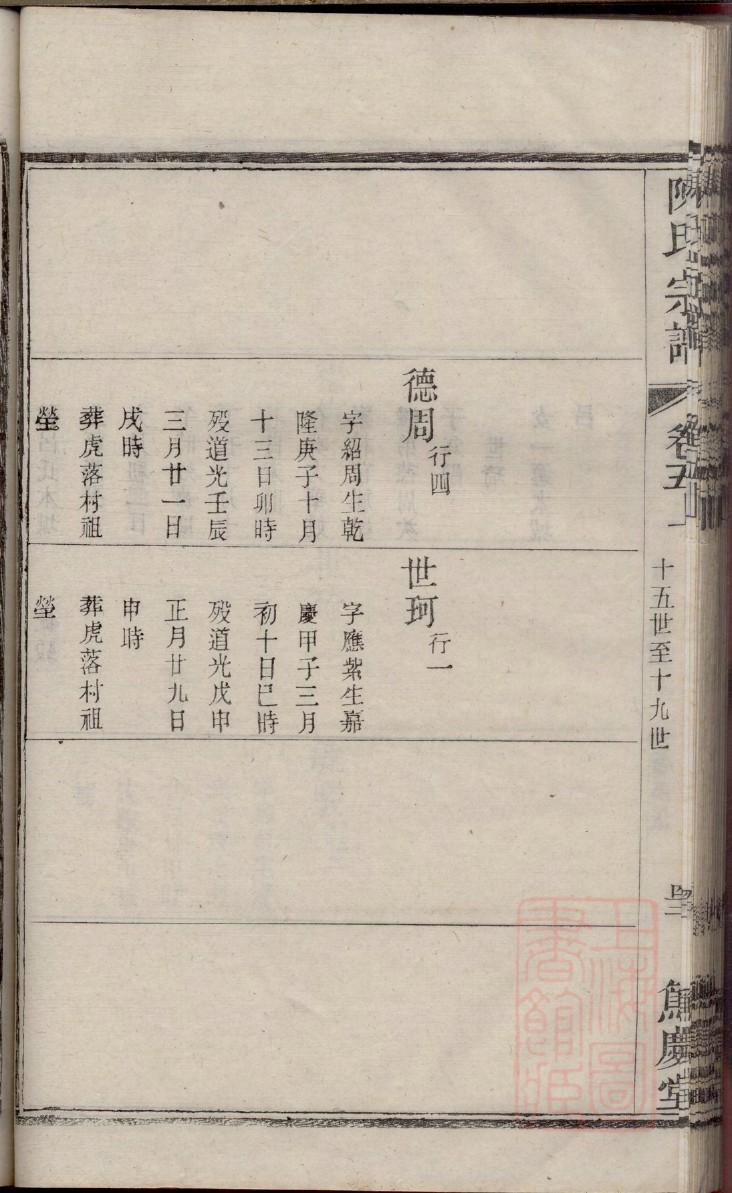 陳氏宗譜
卷五上
十五世至十九世
德周
行四
字紹周生乾
隆庚子十月
十三日卯時
歿道光壬辰
三月廿一日
戌時
葬虎落村祖
塋
世珂
行一
字應紫生嘉
慶甲子三月
初十日巳時
歿道光戊申
正月廿九日
申時
葬虎落村祖
塋
慶堂
上海圖書館